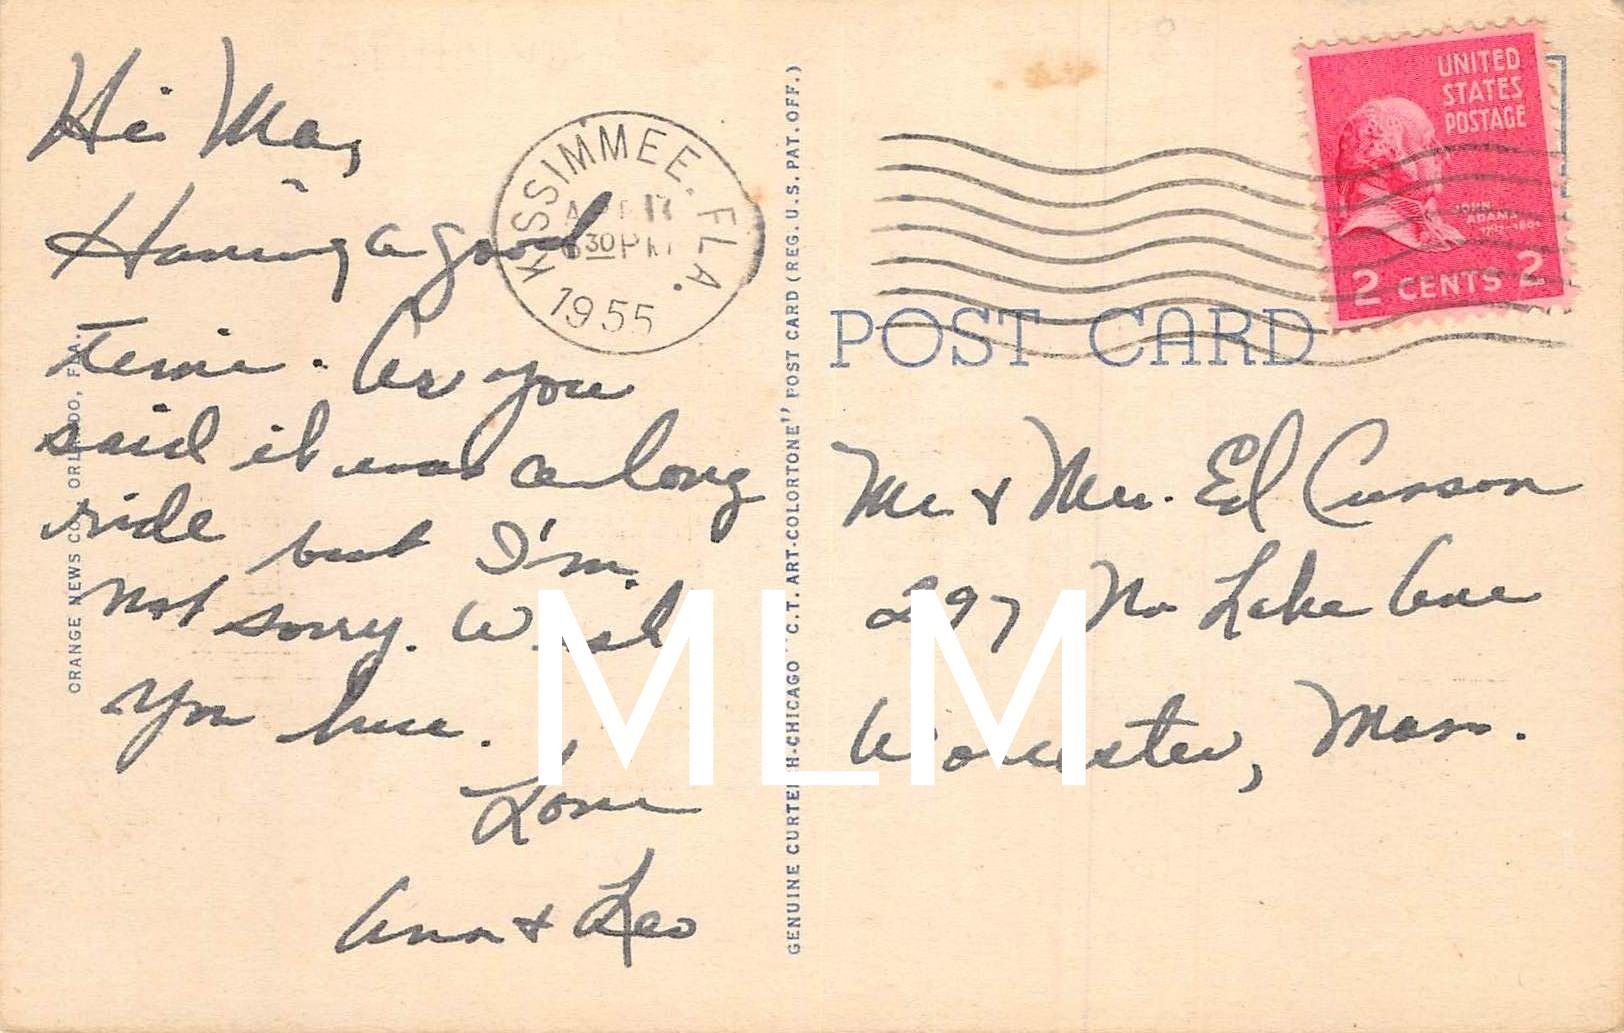 Hi Ma,
Having a good
time. As you
said it was a long
ride but I'm
not sorry. Wish
you here.
Love
Ann & Leo
ORANGE NEWS CO., ORLANDO, FLA.
KISSIMMEE. FLA.
30 PM
1955
GENUINE CURTEICH-CHICAGO "C.T. ART-COLORTONE" POST CARD (REG. U.S. PAT. OFF.)
UNITED
STATES
POSTAGE
JOHN
ADAMS
2 CENTS 2
POST CARD
Mr & Mrs. Ed Cunson
297 No Lake Ave
Worcester, Mass.
MLM